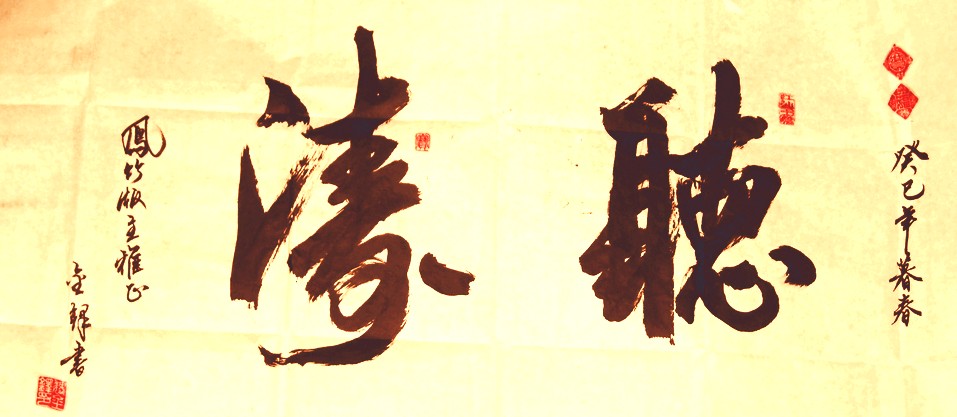 癸巳年暮春
聽濤
鳳竹版主雅正
金鐸書